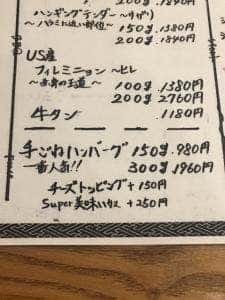 200g 1840円
ハンギングテンダー 〜サガリ
〜ハラミに近い部位〜 150g 1380円
200g 1840円
US産
フィレミニョン 〜ヒレ
〜赤身の王道〜 100g 1380円
200g 2760円
牛タン 1180円
手ごねハンバーグ 150g 980円
一番人気!! 300g 1960円
チーズトッピング +150円
Super美味いソース +250円